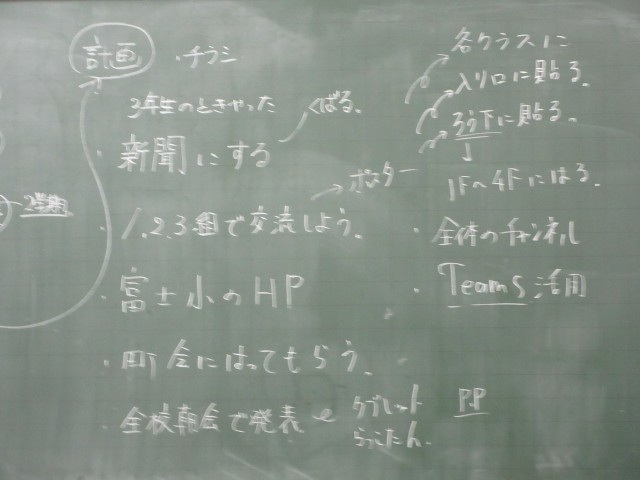 計画
・チラシ
3年生のときやった
・新聞にする
くばる。
ポスター
・1.2.3組で交流しよう。
・富士小のHP
・町会にはってもらう。
・全校朝会で発表
タブレット
PP
各クラスに
入り口に貼る。
ろう下に貼る。
1F〜4Fにはる。
・全体のチャンネル
・Teams活用